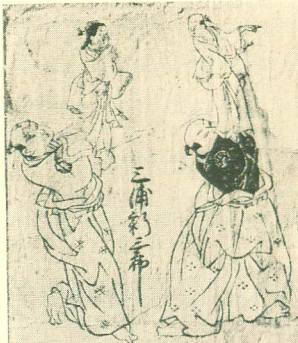 三浦新三郎